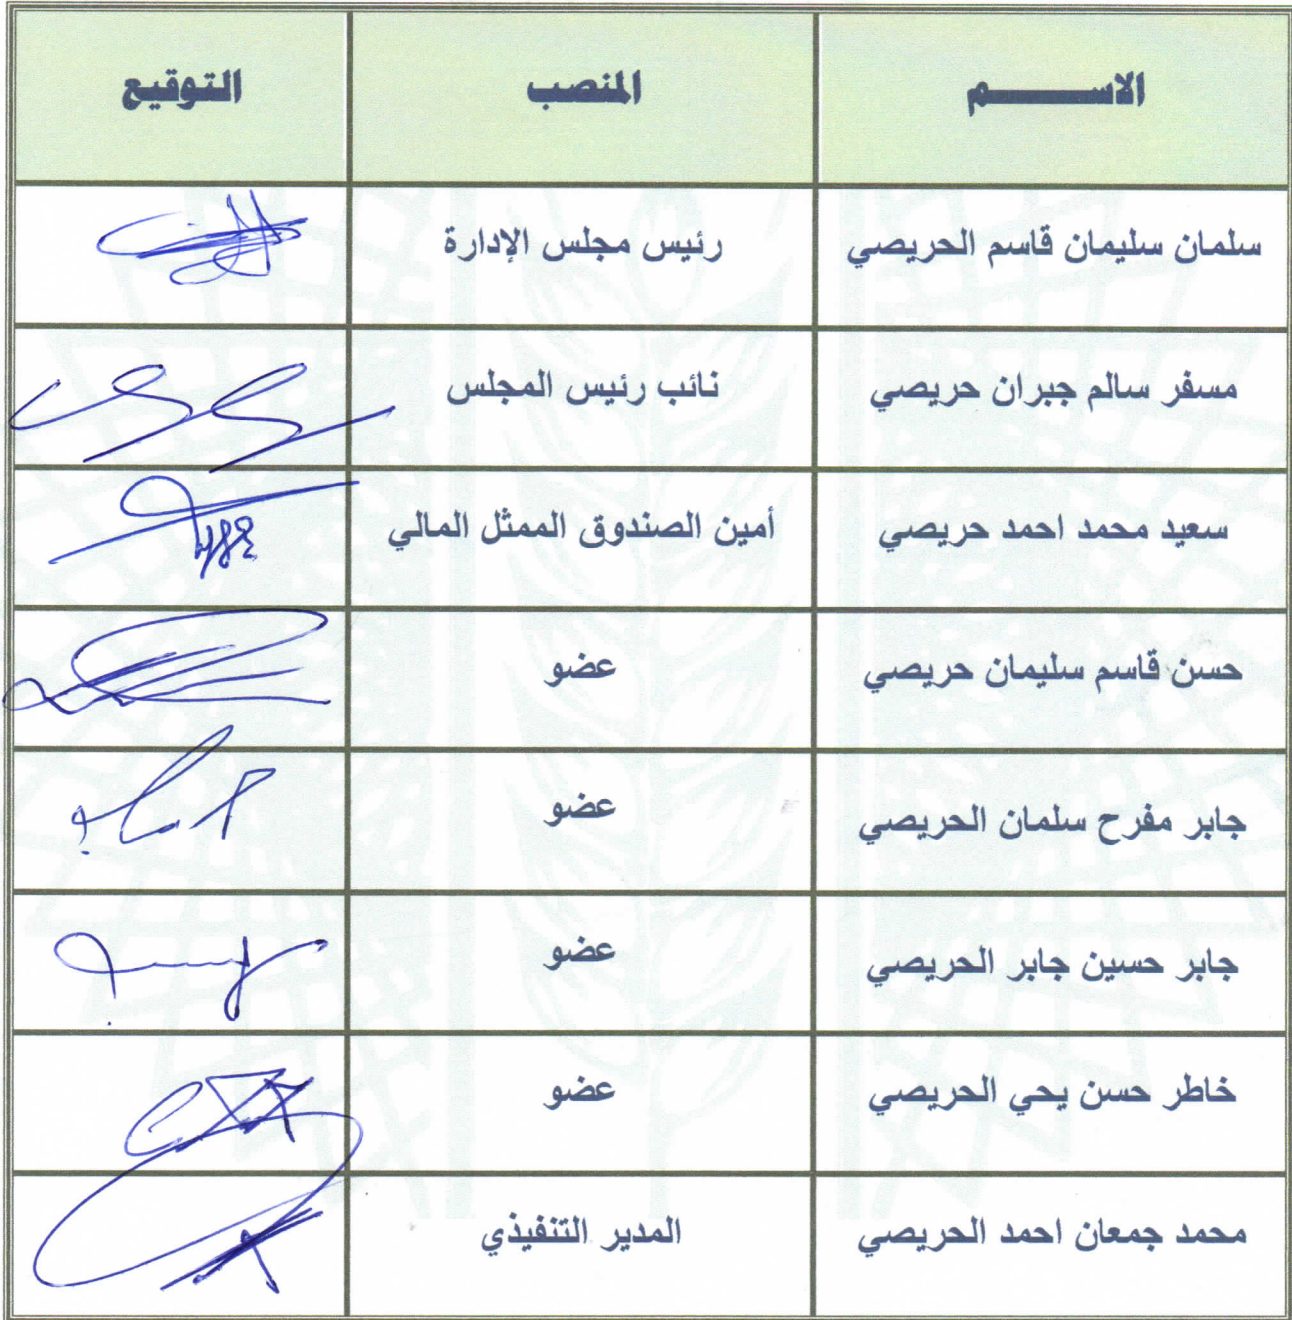 الاسم المنصب التوقيع
سلمان سليمان قاسم الحريصي رئيس مجلس الإدارة
مسفر سالم جبران حريصي نائب رئيس المجلس
سعيد محمد احمد حريصي أمين الصندوق الممثل المالي
حسن قاسم سليمان حريصي عضو
جابر مفرح سلمان الحريصي عضو
جابر حسين جابر الحريصي عضو
خاطر حسن يحي الحريصي عضو
محمد جمعان احمد الحريصي المدير التنفيذي